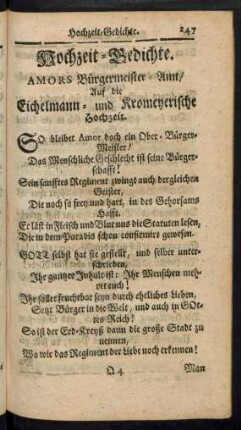 Hochzeit-Gedichte. 247
Hochzeit-Gedichte.
AMORS Bürgermeister-Amt/
Auf die
Eichelmann- und Kromeyerische
Hochzeit.
SO bleibet Amor doch ein Ober-Bürger-
Meister/
Das Menschliche Geschlecht ist seine Bürger-
schafft!
Sein sanfftes Regiment zwingt auch dergleichen
Geister,
Die noch so frey und hart, in des Gehorsams
Hafft.
Er läst in Fleisch und Blut uns die Statuten lesen,
Die in dem Paradis schon confirmirt gewesen.
GOTT selbst hat sie gestellt, und selber unter-
schrieben,
Ihr gantzer Inhalt ist: Ihr Menschen meh-
ret euch!
Ihr sollet fruchtbar seyn durch eheliches Lieben,
Setzt Bürger in die Welt, und auch in GOt-
tes Reich!
So ist der Erd-Kreyß dann die große Stadt zu
nennen,
Wo wir das Regiment der Liebe noch erkennen!
Q 4 Man